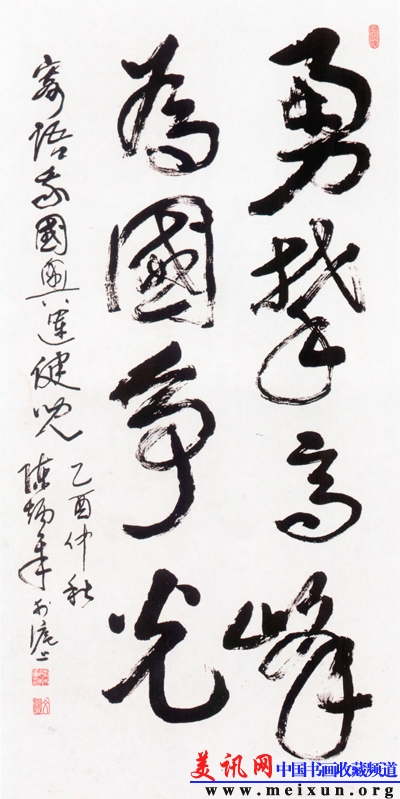 勇攀高峰
為國爭光
寄語我國奧運健兒
乙酉仲秋
陳年於滬上
美讯网 中国书画收藏频道
www.meixun.org